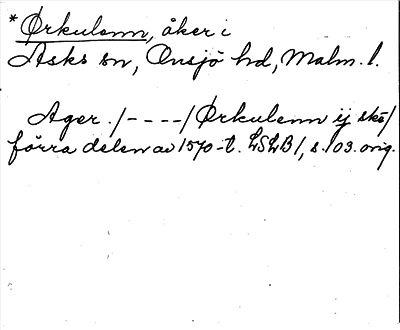 *Ørkulenn, åker i
Asks sn, Onsjö hd, Malm. l.
Ager. /- - - -/ Ørkulenn ij skå/
förra delen av 1570-t. LSLB 1, s. 103. orig.